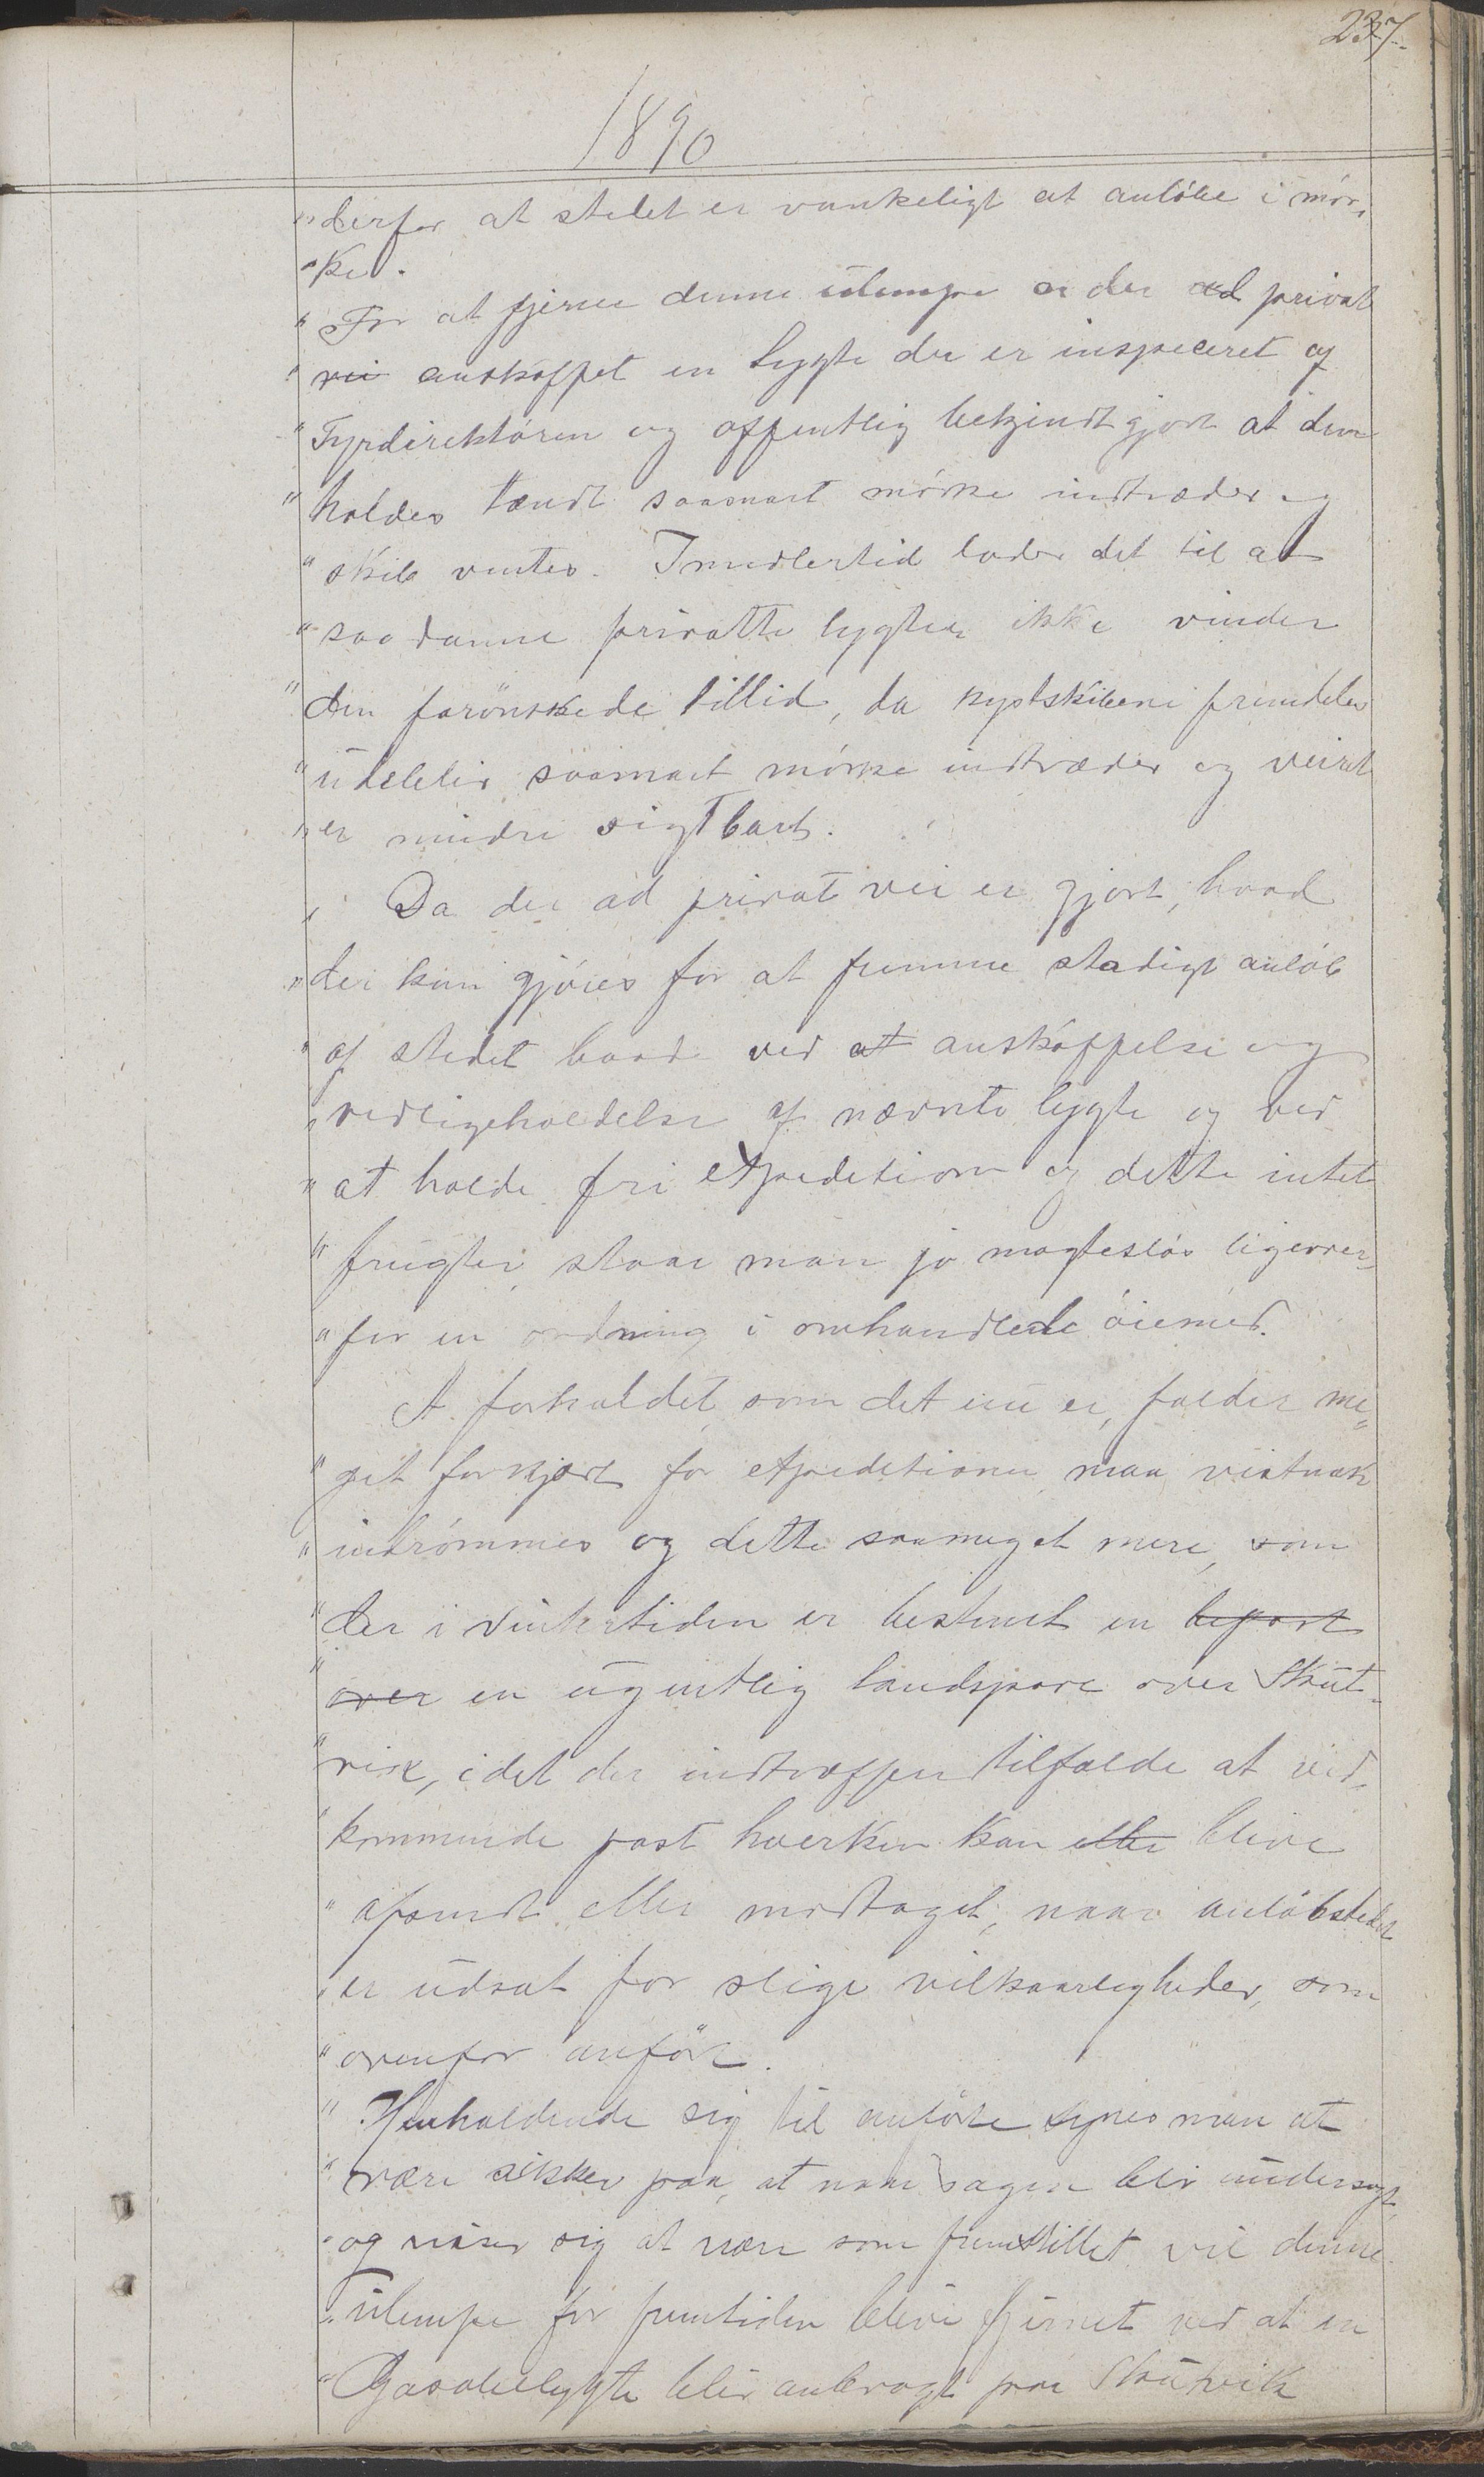 237.
1890
"derfor at stedet er vankeligt at anløbe i mør„
"ke.
"For at fjerne denne ulempe er der ad privat
"vei anskaffet en lygte der er inspiceret af
"Fyrdirektøren og offentlig bekjendtgjort at den
"holdes tændt saasnart mørke indtræder og
"skib ventes. Imidlertid lader det til at
"saadanne privatte lygter ikke vinder
"den forønskede tillid, da kystskibene fremdeles
"udeblir saasnart mørke indtræder og veiret
"er mindre sigtbart.
" Da der ad privat vei er gjort, hvad
"der kan gjøres for at fremme stadigt anløb
"af stedet baade ved at anskaffelse og
"vedligeholdelse af nævnte lygte og ved
"at holde fri expedition og dette intet
"frugter, staar man jo magtesløs ligeover„
"for en ordning i omhandlede øiemed.
At forholdet som det nu er, falder me„
"get forkjært for expeditionen maa vistnok
"indrømmes og dette saameget mere, som
"der i vintertiden er bestemt en bipost
"over en ugentlig landspore over Skut„
"vik, idet der indtræffer tilfælde at ved„
"kommende post hverken kan eller blive
"afsendt eller modtaget, naar anløbstedet
"er udsat for slige vilkaarligheder, som
"ovenfor anført.
"Henholdende sig til anførte synes man at
"være sikker paa, at naar sagen blir undersøgt,
"og viser sig at være som fremstillet vil denne
"ulempe for fremtiden blive fjernet ved at en
"Gasoliellygte blir anbragt paa Skutvik